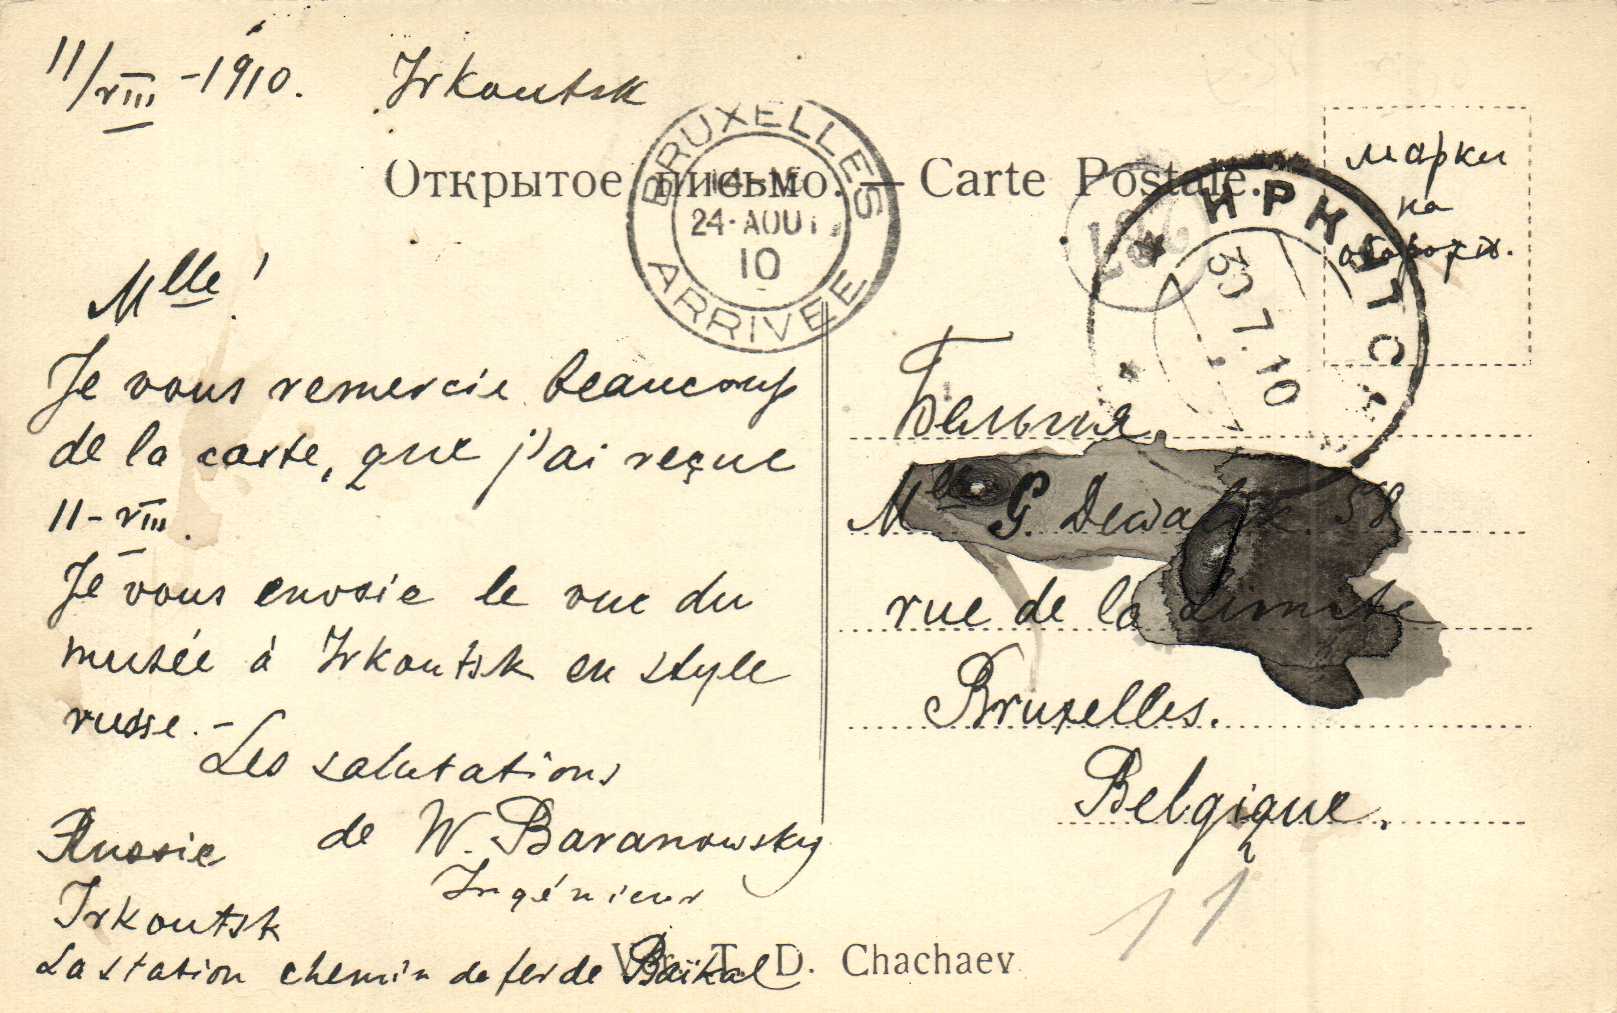 11/VIII -1910. Irkoutsk
Открытое письмо. — Carte Postale.
BRUXELLES
24-AOUT
10
ARRIVÉE
ИРКУТСК
30 7.10
марки
на
оборотѣ.
Mlle!
Je vous remercie beaucoup
de la carte, que j'ai reçue
11-VIII.
Je vous envoie le vue du
musée à Irkoutsk en style
russe.-
Les salutations
de W. Baranowsky
Ingénieur
Russie
Irkoutsk
La station chemin de fer de Baïkal
Бельгия
Mlle G. 58
rue de la Limite
Bruxelles.
Belgique.
11
T. D. Chachaev